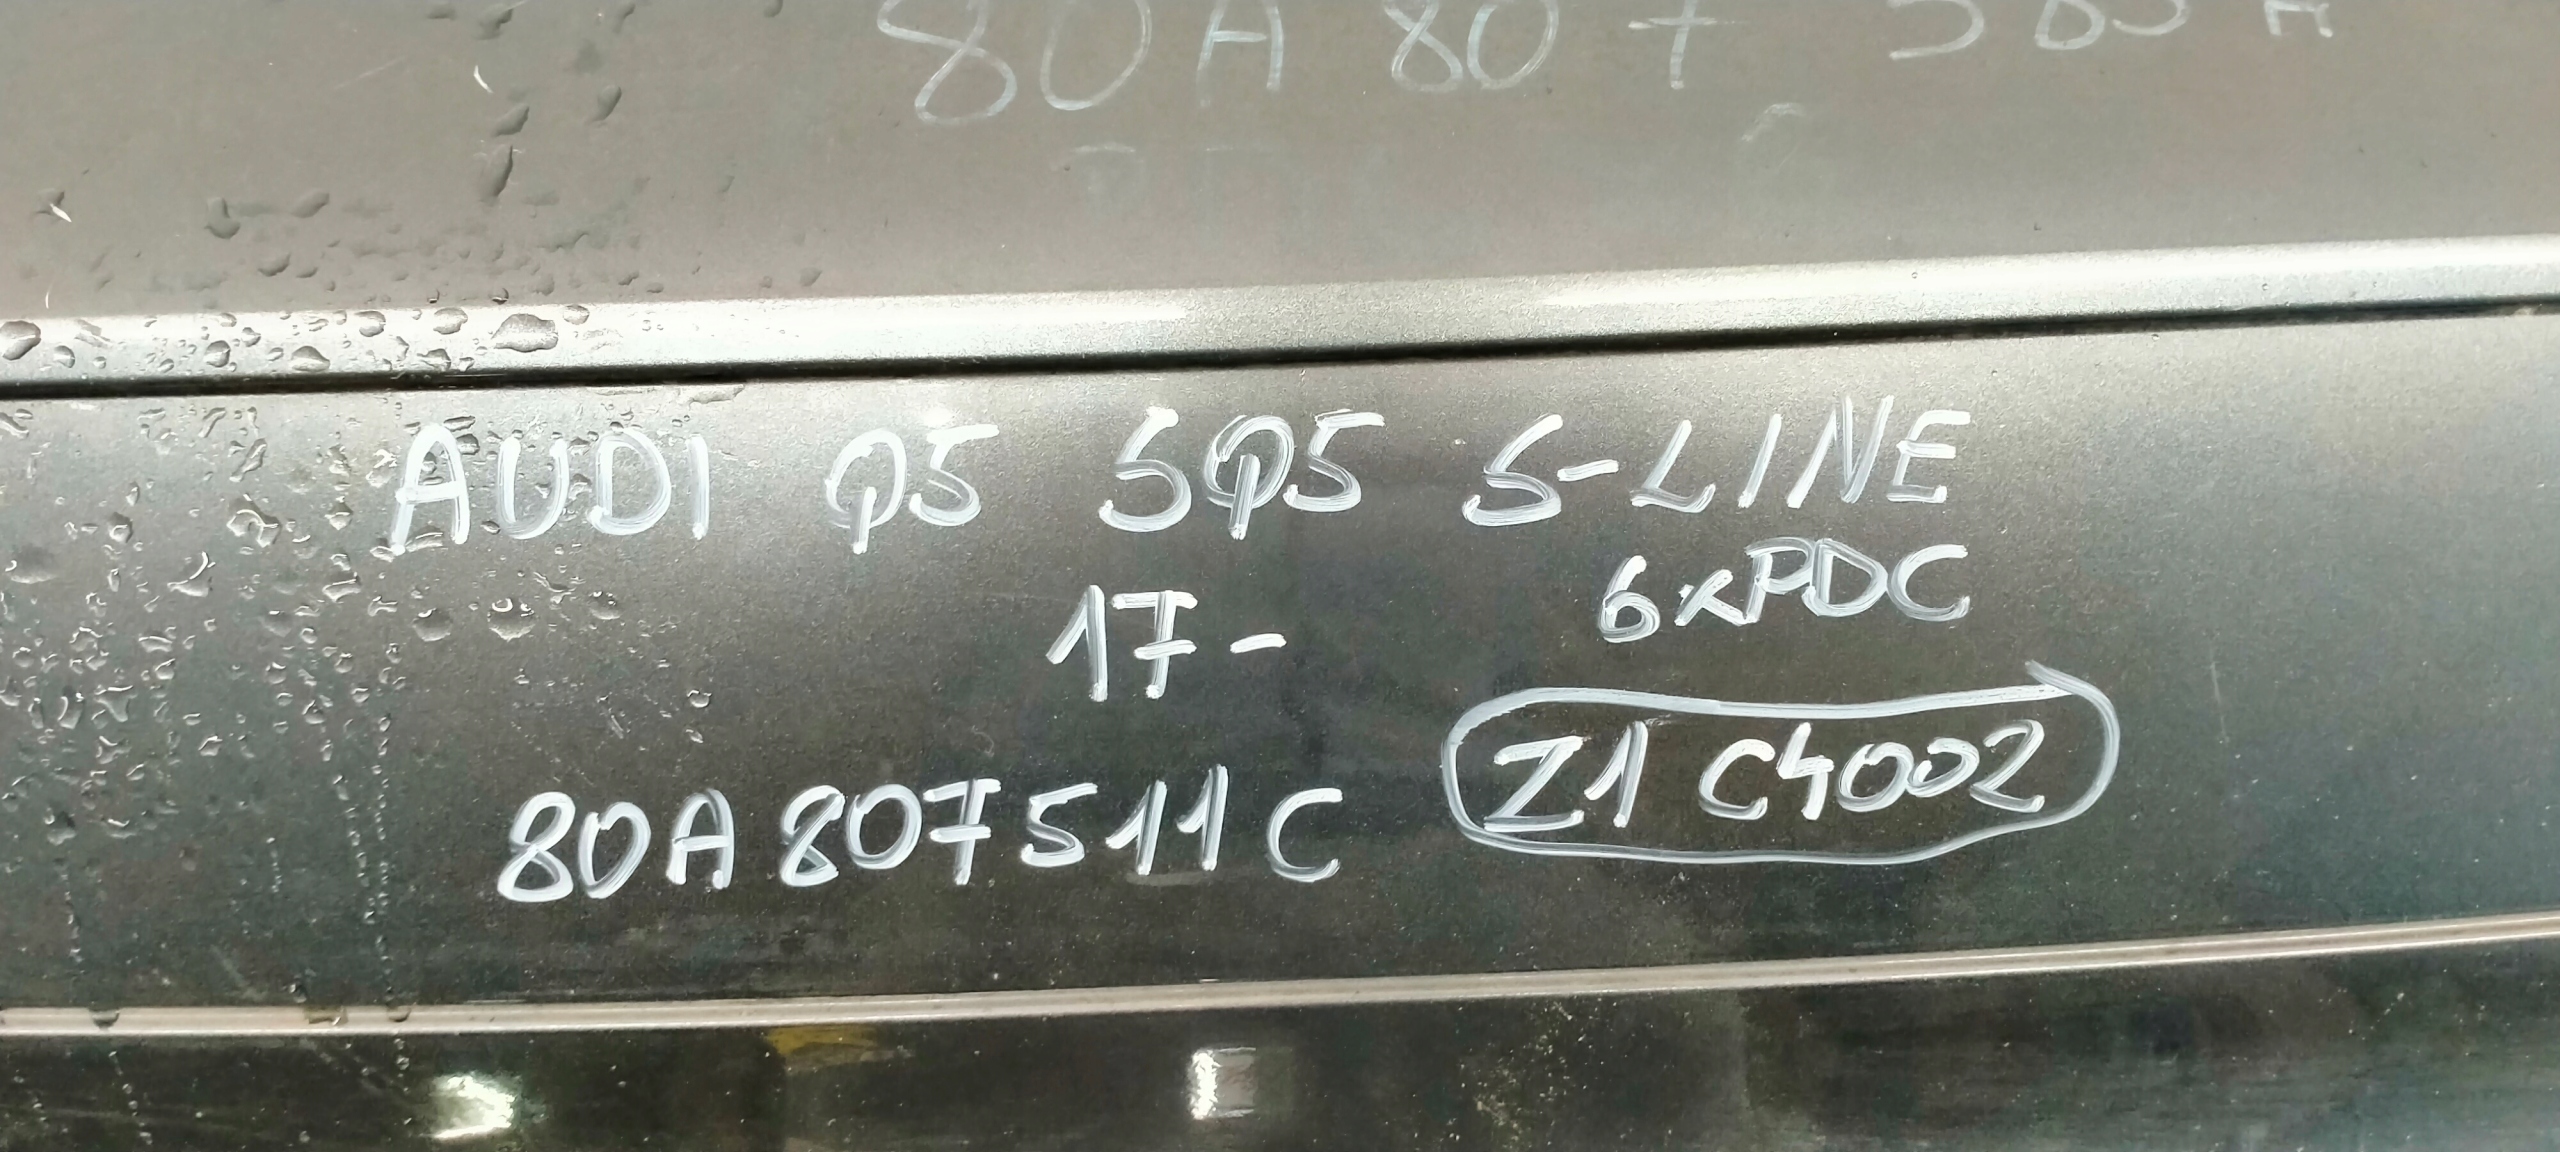 80A 807
AUDI Q5 SQ5 S-LINE
17- 6xPDC
80A807511C Z1 C4002